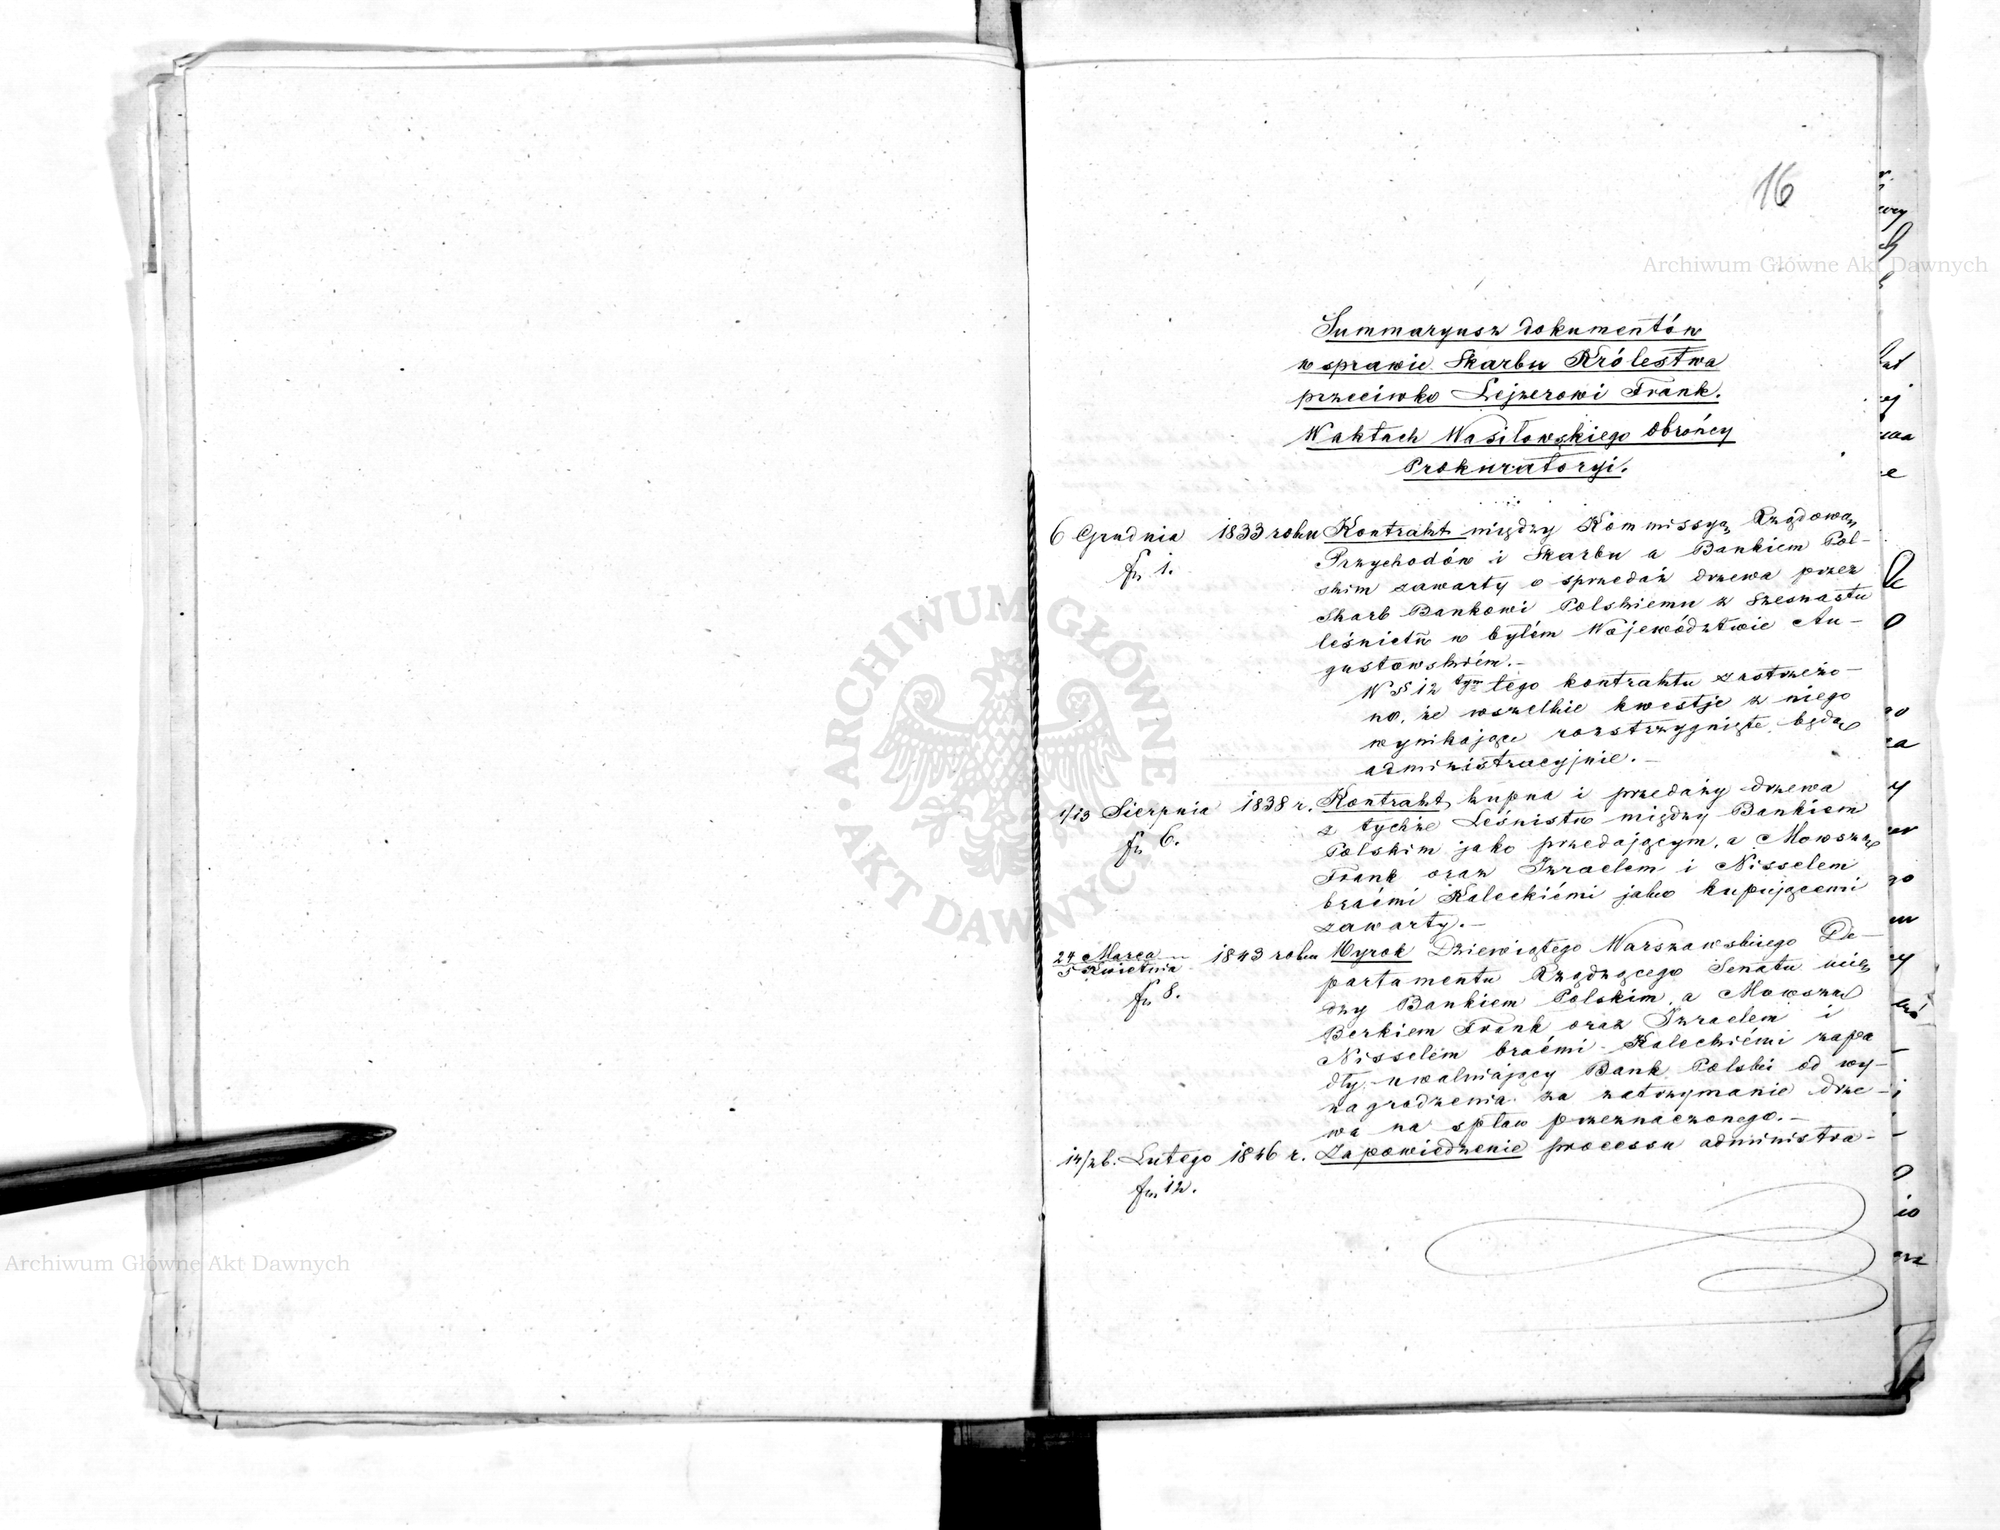 16
Archiwum Główne Akt Dawnych
Summaryusz dokumentów
w sprawie Skarbu Królestwa
przeciwko Lejzerowi Frank.
W aktach Wasilowskiego Obrońcy
Prokuratoryi.
6 Grudnia 1833 roku Kontrakt między Kommissyą Rządową
fu 1.
Przychodów i Skarbu a Bankiem Pol-
skim zawarty o sprzedaż drzewa przez
Skarb Bankowi Polskiemu z szesnastu
leśnictw w byłém Województwie Au-
gustowskiém.-
W § 12 tym tego kontraktu zastrzeżo-
no, że wszelkie kwestje z niego
wynikające rozstrzygnięte będą
administracyjnie.-
1/13 Sierpnia 1838 r. Kontrakt kupna i przedaży drzewa
fu 6.
z tychże Leśnictw między Bankiem
Polskim jako przedającym, a Mowszą
Frank oraz Izraelem i Nisselem
braćmi Kaleckiémi jako kupującemi
zawarty.-
24 Marca
5 Kwietnia 1843 roku Wyrok Dziewiątego Warszawskiego De-
fu 8.
partamentu Rządzącego Senatu mię
dzy Bankiem Polskim, a Mowszą
Berkiem Frank oraz Izraelem i
Nisselem braćmi Kaleckiémi zapa
dły, uwalniający Bank Polski od wy-
nagrodzenia za zatrzymanie drze-
wa na spław przeznaczonego.-
14/26. Lutego 1846 r. Zapowiedzenie processu administra-
fu 12.
ARCHIWUM GŁÓWNE AKT DAWNYCH
Archiwum Główne Akt Dawnych